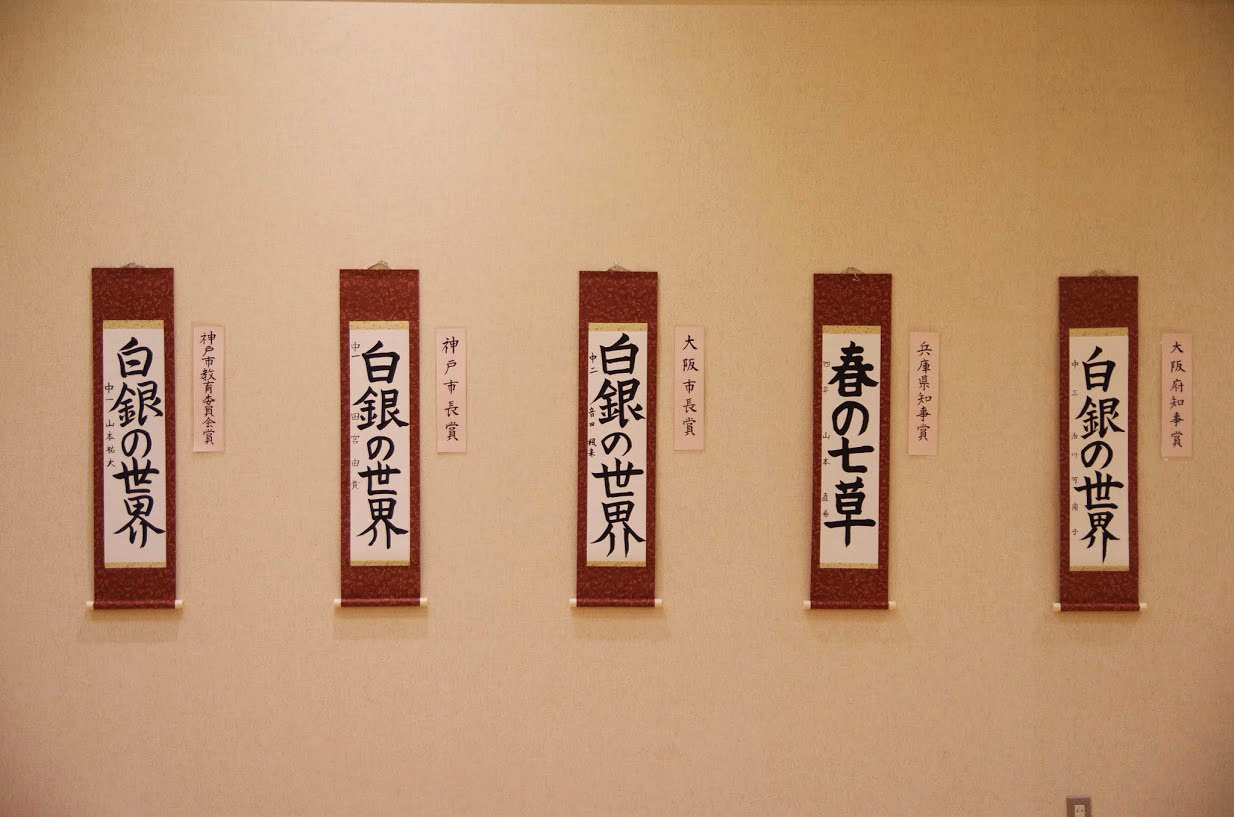 大阪府知事賞
白銀の世界
中三
兵庫県知事賞
春の七草
四年 山本
大阪市長賞
白銀の世界
中二
神戸市長賞
白銀の世界
中一 田宮由貴
神戸市教育委員会賞
白銀の世界
中一 山本祐大